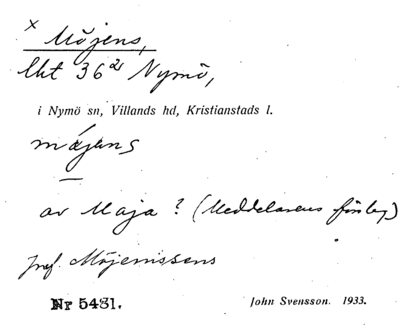 x Möjens,
lht 36² Nymö,
i Nymö sn, Villands hd, Kristianstads l.
mǿjens
av Maja? (Meddelarens förslag)
jmf. Möjenissens
Nr 5481. John Svensson. 1933.